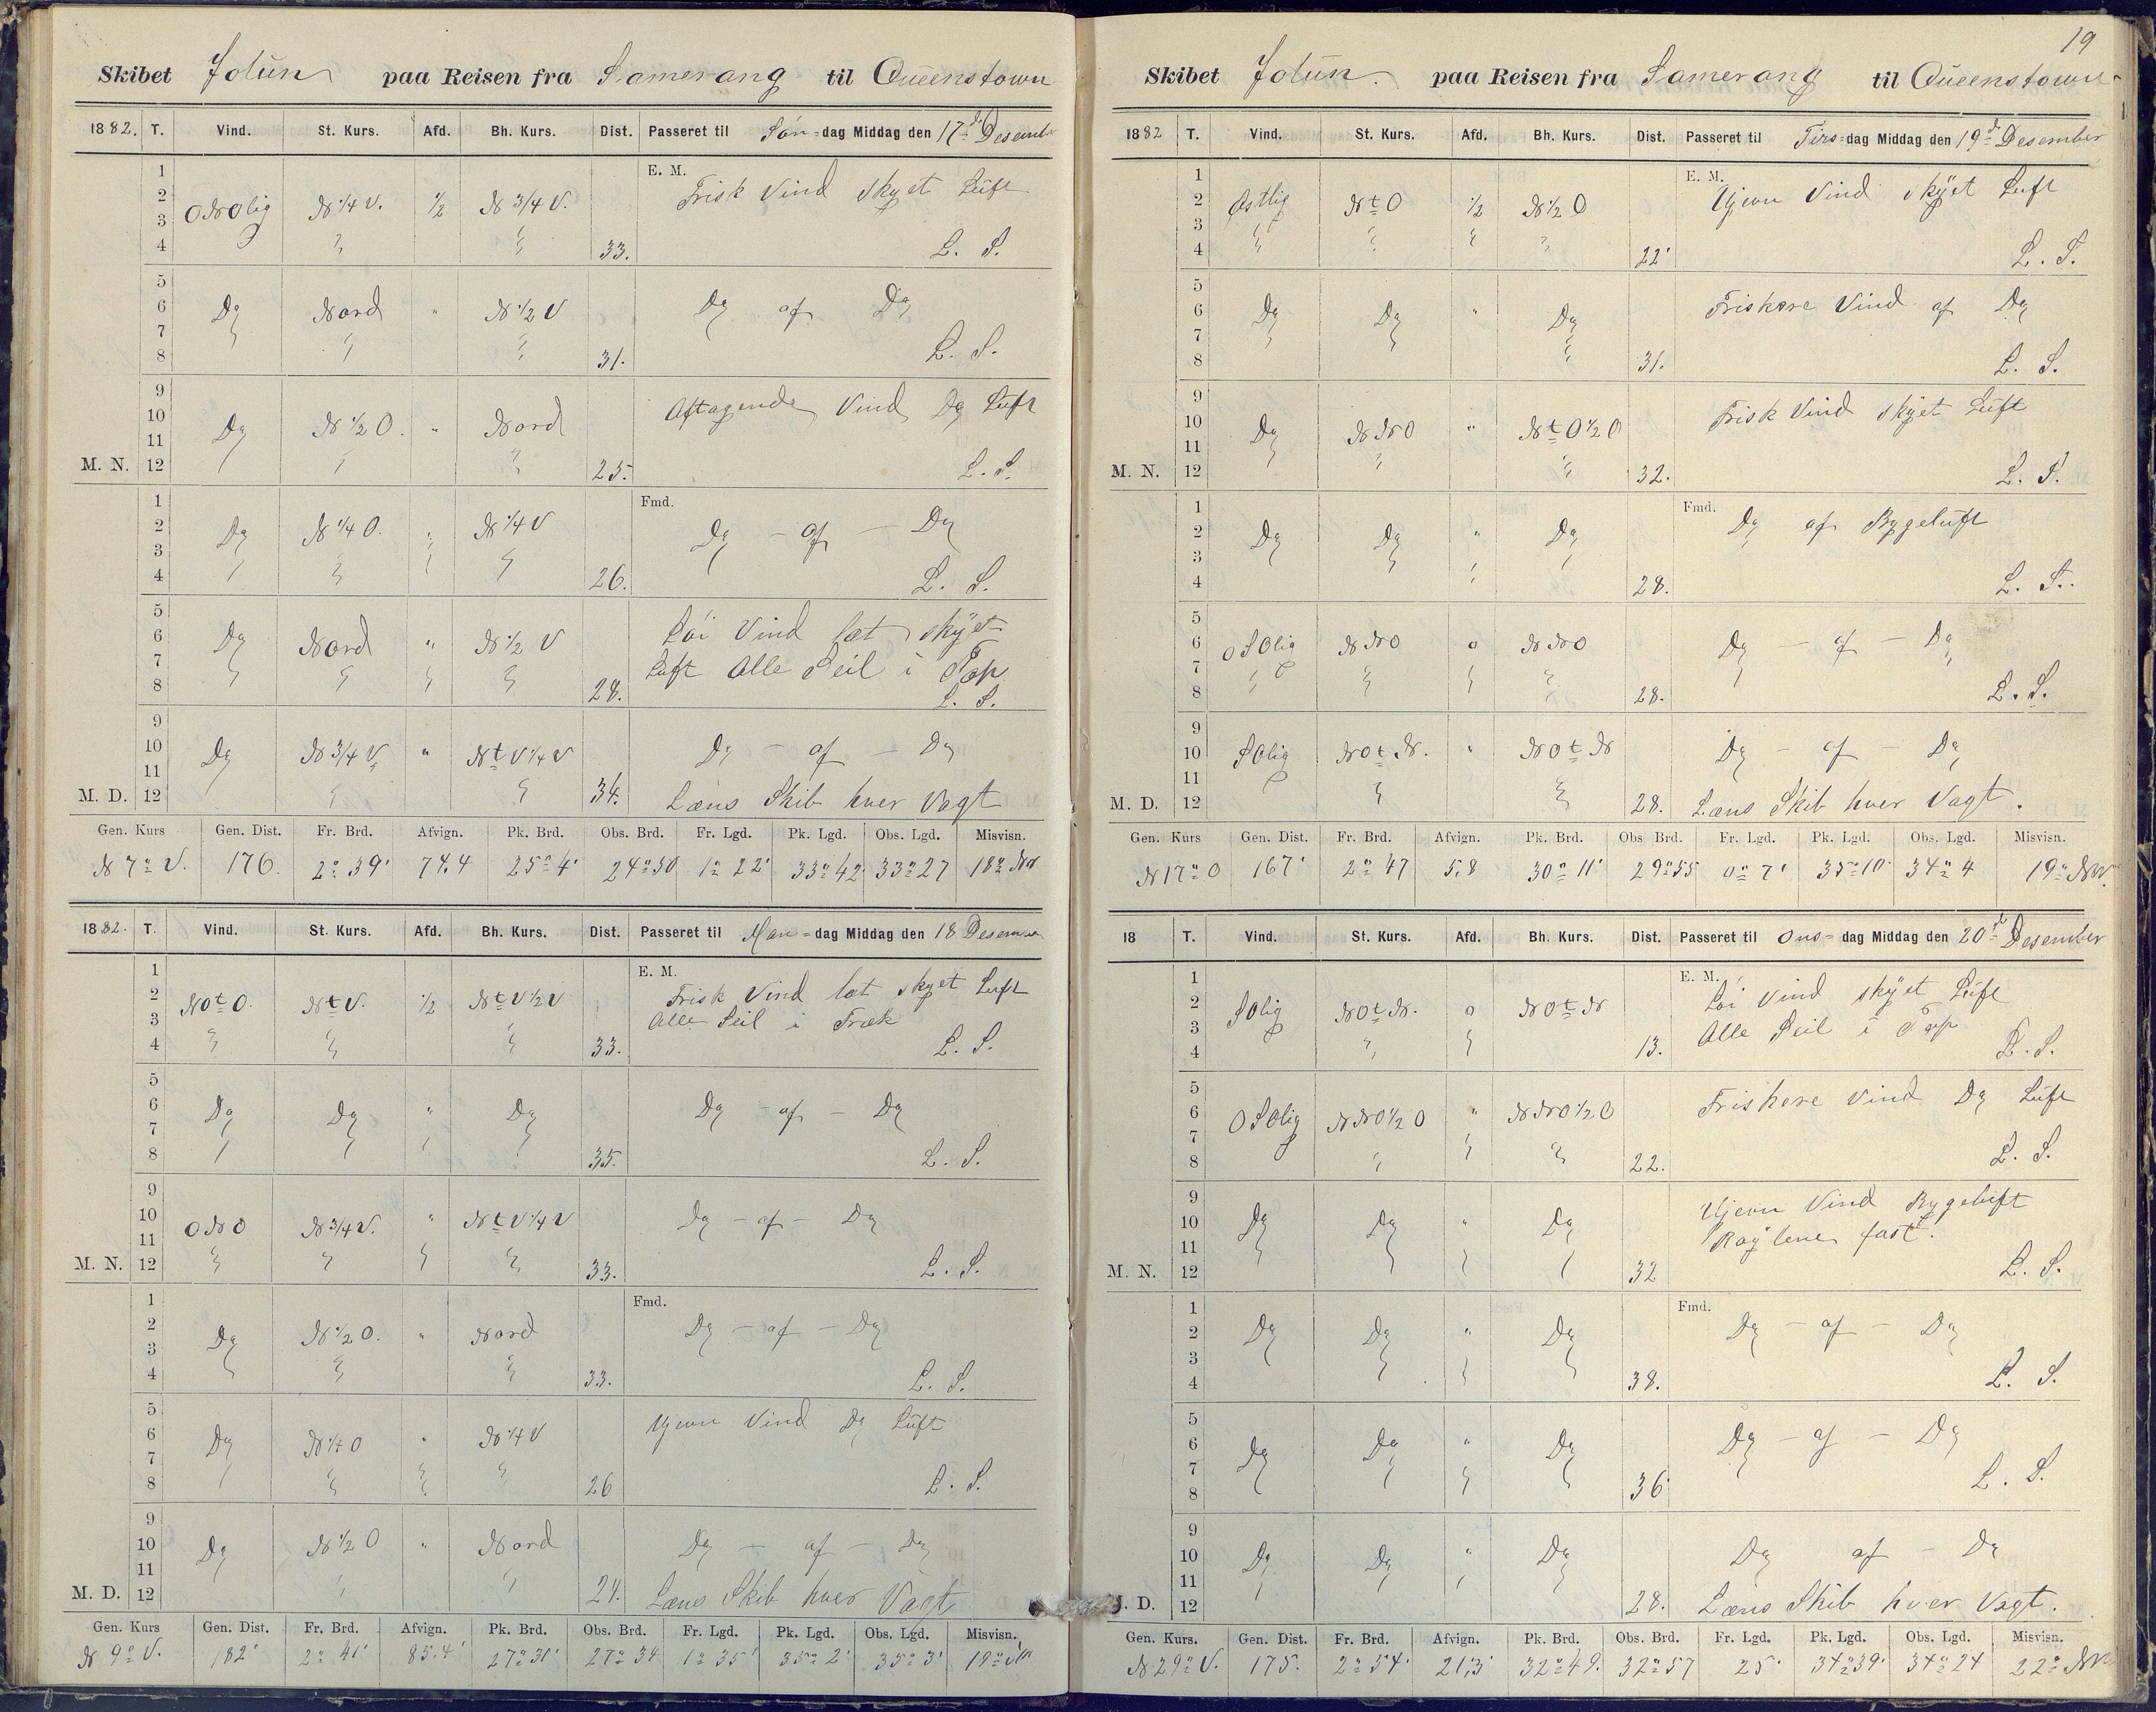 Skibet Jotün paa Reisen fra Samerang til Queenstown
1882. T. Vind. St. Kurs. Afd. Bh. Kurs. Dist. Passeret til Søn=dag Middag den 17d Desember
E. M.
1 2 3 4 ONOlig N 1/4 V. 1/2 N 3/4 V. 33. Frisk Vind skyet Lüft
L. S.
5 6 7 8 Do Nord " N 1/2 V 31. Do af Do
L. S.
9 10 11 M. N. 12 Do N 1/2 O. " Nord 25. Aftagende Vind Do Lüft
L. S.
Fmd.
1 2 3 4 Do N 1/4 O. " N 1/4 V 26. Do - af - Do
L. S.
5 6 7 8 Do Nord " N 1/2 V 28. Løi Vind læt skyet
Lüft Alle Seil i Top
L. S.
9 10 11 M. D. 12 Do N 3/4 V. " NtV 1/4 V 34. Do - af - Do
Læns Skib hver Vagt
Gen. Kurs Gen. Dist. Fr. Brd. Afvign. Pk. Brd. Obs. Brd. Fr. Lgd. Pk. Lgd. Obs. Lgd. Misvisn.
N 7° V. 176. 2° 39' 74.4 25° 4' 24° 50 1° 22' 33° 42' 33° 27 18° NV
1882. T. Vind. St. Kurs. Afd. Bh. Kurs. Dist. Passeret til Man=dag Middag den 18 Desember
E. M.
1 2 3 4 NOtO. NtV. 1/2 NtV 1/2 V 33. Frisk Vind læt skyet Luft
Alle Seil i Træk
L. S.
5 6 7 8 Do Do " Do 35. Do af - Do
L. S.
9 10 11 M. N. 12 ONO N 3/4 V. " NtV 1/4 V 33. Do - af - Do
L. S.
Fmd.
1 2 3 4 Do N 1/2 O. " Nord 33. Do - af - Do
L. S.
5 6 7 8 Do N 1/4 O " N 1/4 V 26 Ujevn Vind Do Lüft
L. S.
9 10 11 M. D. 12 Do N 1/2 O " Nord 24. Do - af - Do
Læns Skib hver Vagt
Gen. Kurs Gen. Dist. Fr. Brd. Afvign. Pk. Brd. Obs. Brd. Fr. Lgd. Pk. Lgd. Obs. Lgd. Misvisn.
N 9° V. 182' 2° 41' 85.4' 27° 31' 27° 34 1° 35' 35° 2' 35° 3' 19°
19
Skibet Jotün. paa Reisen fra Samerang til Queenstown
1882 T. Vind. St. Kurs. Afd. Bh. Kurs. Dist. Passeret til Tirs=dag Middag den 19d Desember
E. M.
1 2 3 4 Østlig NtO 1/2 N 1/2 O 22' Ujevn Vind skyet Luft
L. S.
5 6 7 8 Do Do " Do 31. Friskere Vind af Do
L. S.
9 10 11 M. N. 12 Do NNO " NtO 1/2 O 32. Frisk Vind skyet Lüft
L. S.
Fmd.
1 2 3 4 Do Do " Do 28. Do af Bygelüft
L. S.
5 6 7 8 OSOlig NNO o NNO 28. Do - af - Do
L. S.
9 10 11 M. D. 12 SOlig NOtN. " NOtN 28. Do - af - Do
Læns Skib hver Vagt.
Gen. Kurs Gen. Dist. Fr. Brd. Afvign. Pk. Brd. Obs Brd. Fr. Lgd. Pk. Lgd. Obs. Lgd. Misvisn.
N 17° O 167' 2° 47 5,8 30° 11' 29° 55 0° 7' 35° 10' 34° 4 19° NV.
18 T. Vind. St. Kurs. Afd. Bh. Kurs. Dist. Passeret til Ons=dag Middag den 20d Desember
E. M.
1 2 3 4 SOlig NOtN. o NOtN 13. Løi Vind skyet Lüft
Alle Seil i Top
L. S.
5 6 7 8 OSOlig NNO 1/2 O " NNO 1/2 O 22. Friskere Vind Do Lüft
L. S.
9 10 11 M. N. 12 Do Do " Do 32 Ujevn Vind Bygelüft
Røylene fast.
L. S.
Fmd.
1 2 3 4 Do Do " Do 38. Do - af - Do
L. S.
5 6 7 8 Do Do " Do 36' Do - af - Do
L. S.
9 10 11 M. D. 12 Do Do " Do 28. Do af - Do
Læns Skib hver Vagt.
Gen. Kurs. Gen. Dist. Fr. Brd. Afvign. Pk. Brd. Obs. Brd. Fr. Lgd. Pk. Lgd. Obs. Lgd. Misvisn.
N. 29° V. 175. 2° 54' 21,3' 32° 49. 32° 57 25' 34° 39' 34° 24 22° NV